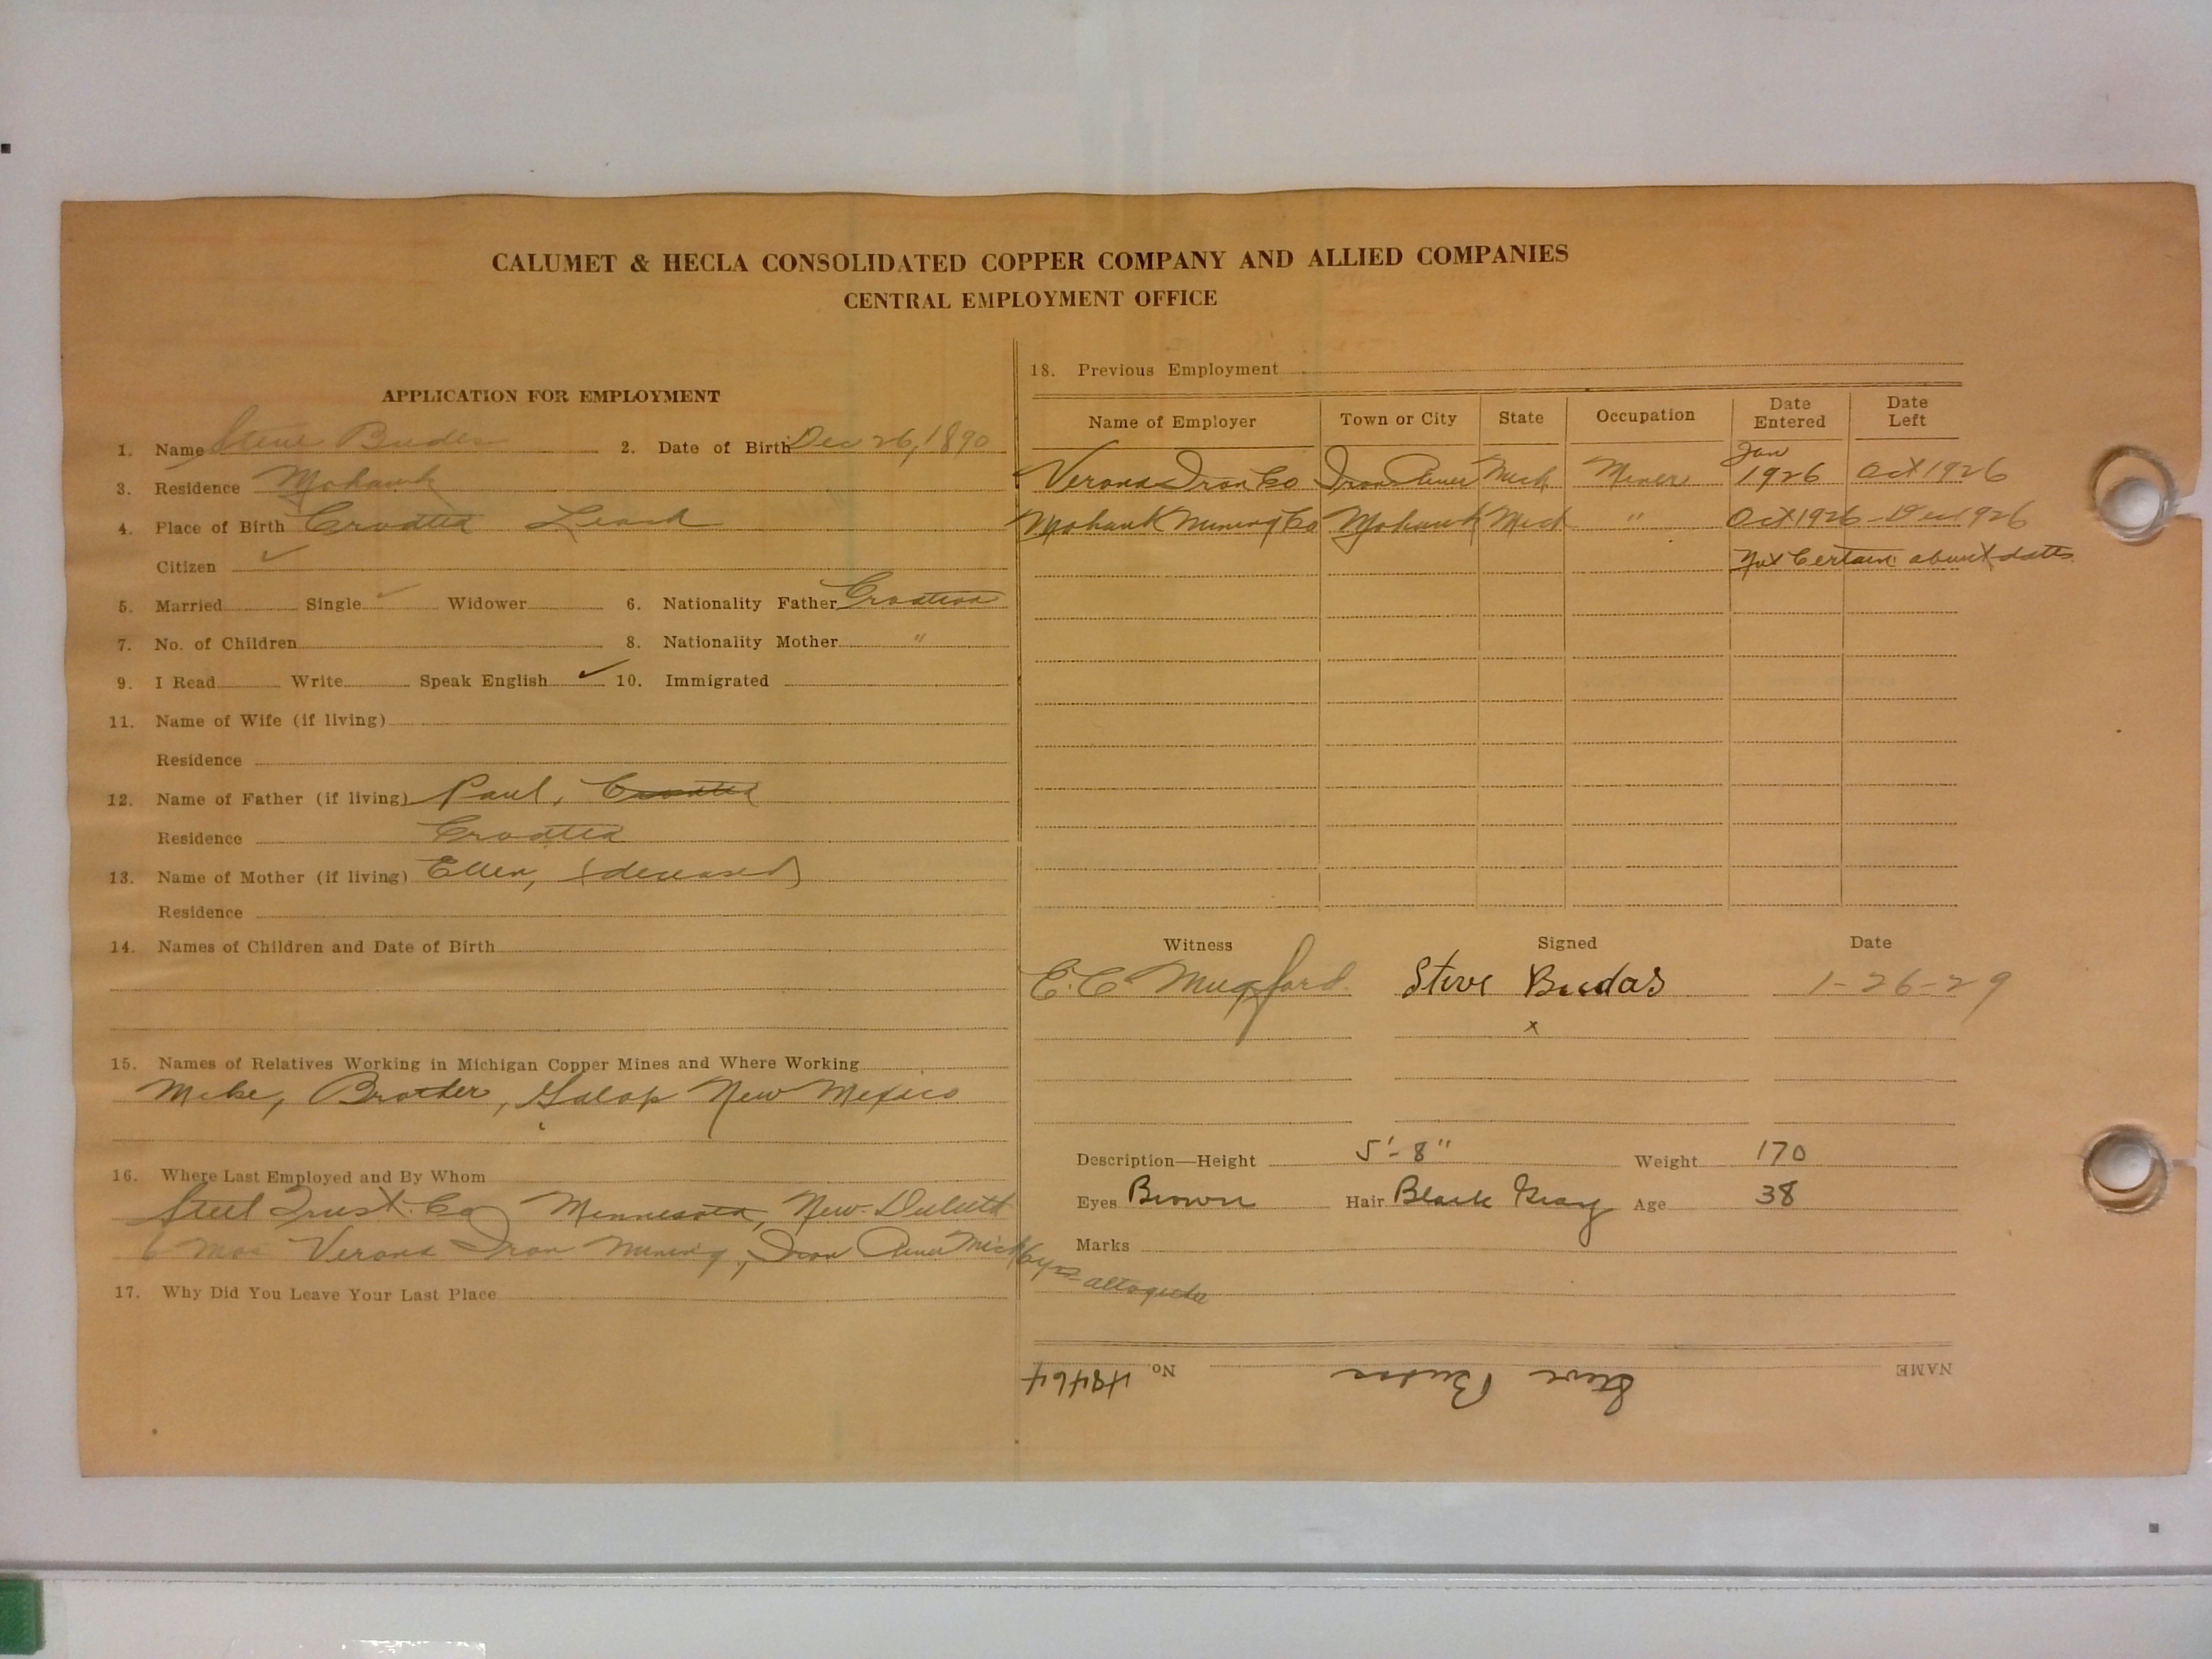 CALUMET & HECLA CONSOLIDATED COPPER COMPANY AND ALLIED COMPANIES
CENTRAL EMPLOYMENT OFFICE
APPLICATION FOR EMPLOYMENT
1. Name Steve Budas 2. Date of Birth Dec 26, 1890
3. Residence Mohawk
4. Place of Birth Croatia
Citizen ✓
5. Married Single ✓ Widower 6. Nationality Father Croatian
7. No. of Children 8. Nationality Mother "
9. I Read Write Speak English ✓ 10. Immigrated
11. Name of Wife (if living)
Residence
12. Name of Father (if living) Paul, Croatia
Residence Croatia
13. Name of Mother (if living) Ellen, (deceased)
Residence
14. Names of Children and Date of Birth
15. Names of Relatives Working in Michigan Copper Mines and Where Working
Mike, Brother, Galop New Mexico
16. Where Last Employed and By Whom
Steel Trust Co Minnesota, New Duluth
6 mos Verona Iron Mining, Iron River Mich 6 yrs altogether
17. Why Did You Leave Your Last Place
18. Previous Employment
Name of Employer Town or City State Occupation Date Entered Date Left
Verona Iron Co Iron River Mich Miner Jan 1926 Oct 1926
Mohawk Mining Co Mohawk Mich " Oct 1926 - Dec 1926
Not Certain about dates
Witness Signed Date
E.C. Mugford Steve Budas 1-26-29
x
Description—Height 5'-8" Weight 170
Eyes Brown Hair Black Gray Age 38
Marks
NAME Steve Budas No. 48464